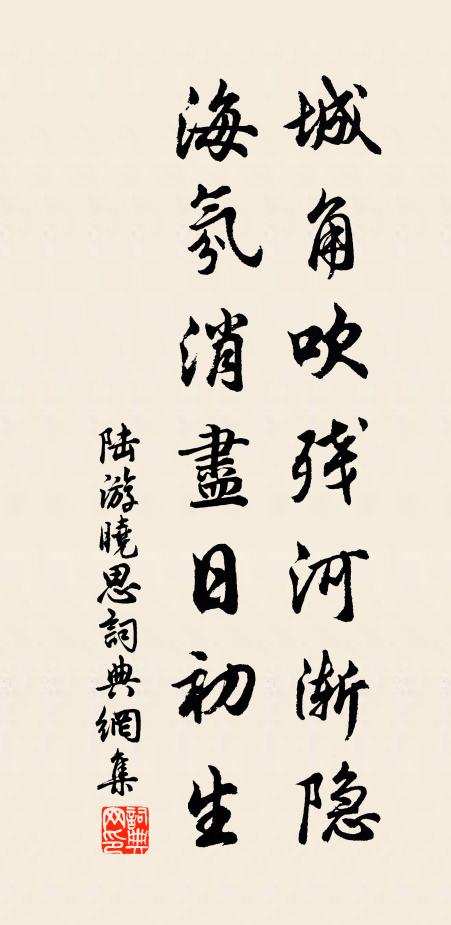 城角吹残河渐隐
海氛消盡日初生
陸游曉思詞典網集
詞典网印